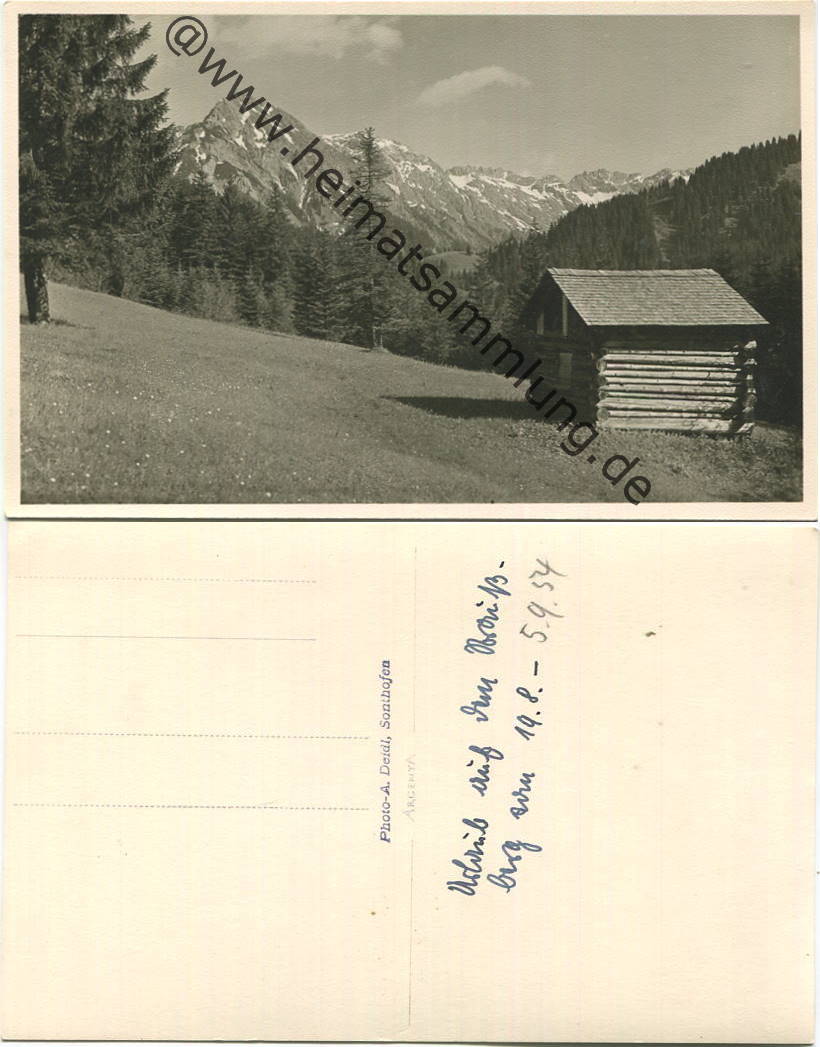 @www.heimatsammlung.de
Photo-A. Deidl, Sonthofen
ARGENTA
Urlaub auf dem Strauß-
berg vom 19.8. – 5.9.54